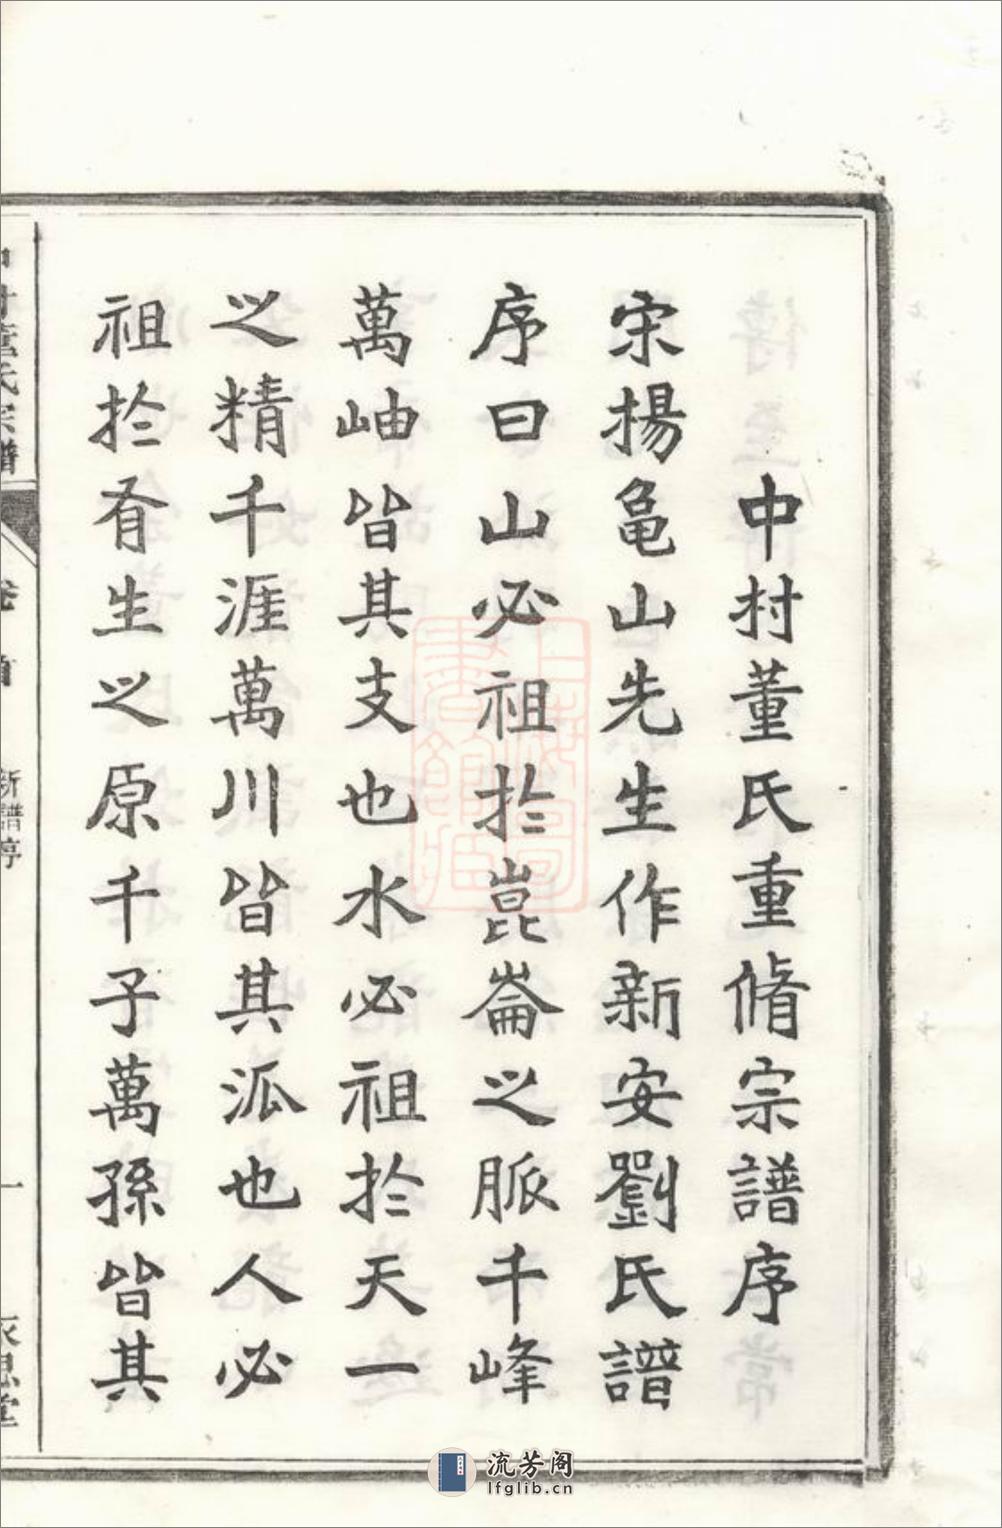 中村董氏重脩宗譜序
宋揚龜山先生作新安劉氏譜
序曰山必祖扵崑崙之脈千峰
萬岫皆其支也水必祖扵天一
之精千涯萬川皆其派也人必
祖扵有生之原千子萬孫皆其
中村董氏宗譜
卷首
新譜序
一
上海圖書館藏
流芳阁
lfglib.cn